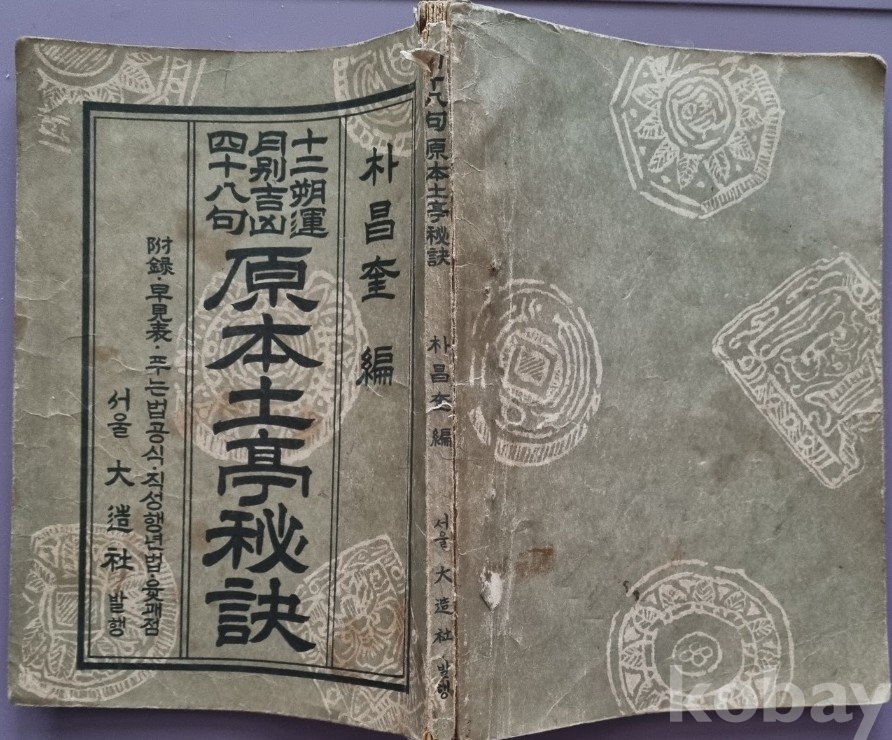 朴昌奎 編
十二朔運
月別吉凶
四十八句
原本土亭秘訣
附錄·早見表·푸는법공식·직성행년법·윷괘점
서울 大造社 발행
十八句 原本土亭秘訣 朴昌奎 編 서울 大造社 발행
kobay